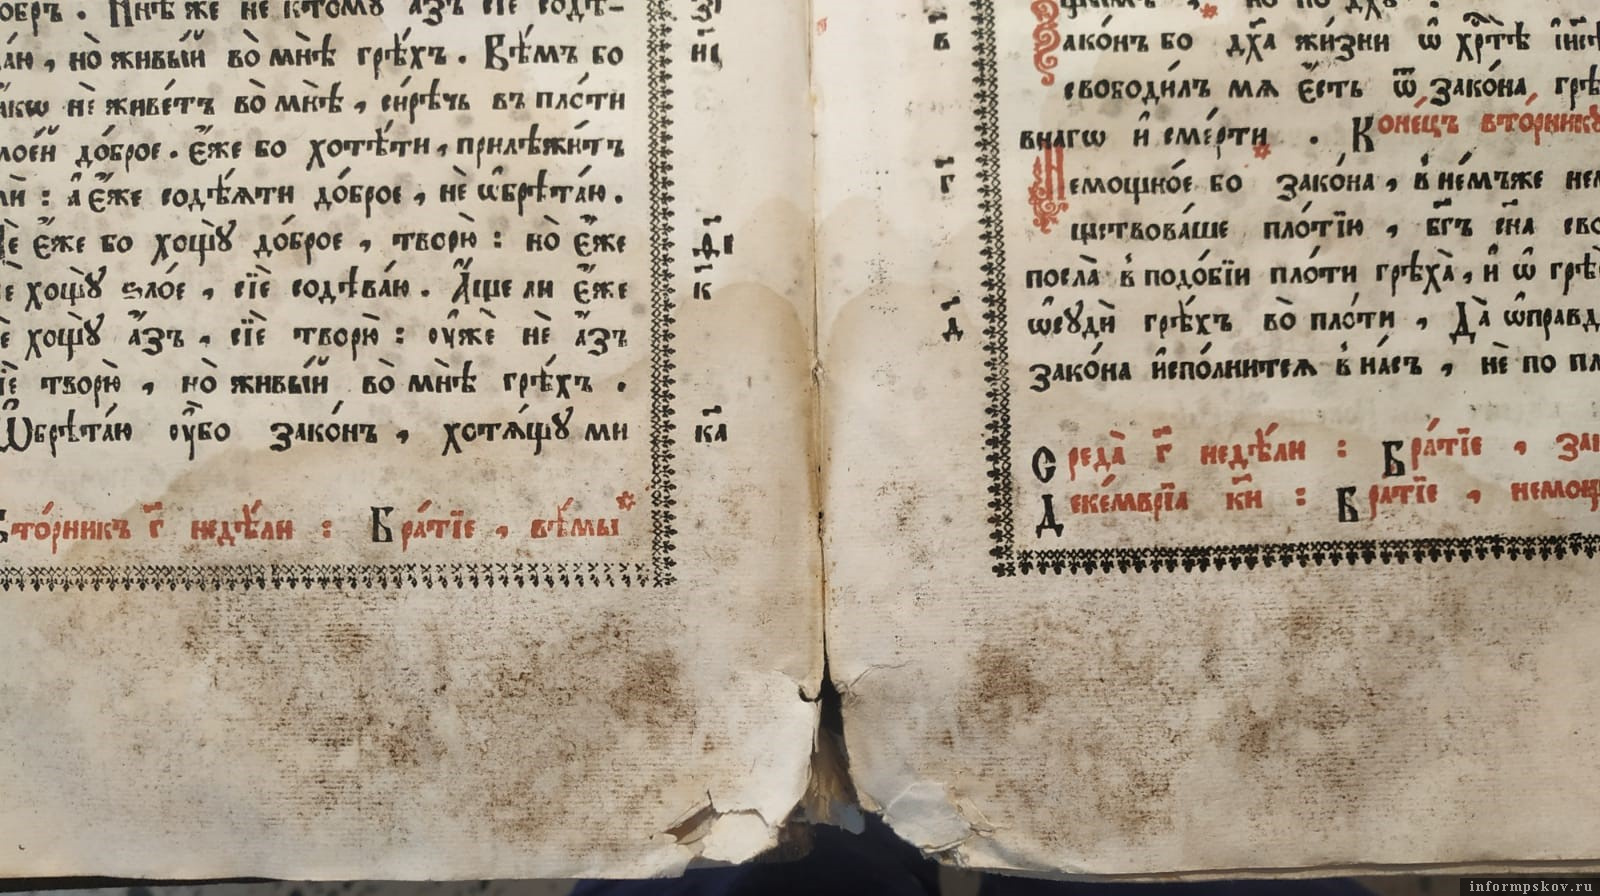 добръ . Ннѣ же не ктомꙋ а҆́зъ сїѐ содѣ-
ва́ю , но̀ живы́й во̀ мнѣ̀ грѣ́хъ . Вѣ́мъ бо
ꙗ҆́кѡ нѐ живе́тъ во̀ мнѣ̀ , си́рѣчь въ пло́ти
мое́й до́брое . є҆́же бо хотѣ́ти , прилѣжи́тъ
мѝ : а҆ є҆́же содѣ́ѧти до́брое , нѐ ѡ҆брѣта́ю .
Нѐ є҆́же бо хощꙋ̀ до́брое , творю̀ : но̀ є҆́же
нѐ хощꙋ̀ ѕло́е , сїѐ содѣва́ю . А҆́ще ли є҆́же
нѐ хощꙋ̀ а҆́зъ , сїѐ творю̀ : ᲂу҆жѐ нѐ а҆́зъ
сїѐ творю̀ , но̀ живы́й во̀ мнѣ̀ грѣ́хъ .
Ѡ҆брѣта́ю ᲂу҆́бо зако́нъ , хотѧ́щꙋ ми
Вто́рникъ г҃ недѣ́ли : Бра́тїе , вѣ́мы *
иі҃
ѳ҃і
к҃
к҃а
в҃
г҃
д҃
Зако́нъ бо дх҃а жи́зни ѡ҆ хрⷭ҇тѣ̀ і҆и҃сѣ
свободи́лъ мѧ є҆́сть ѿ зако́на грѣ
внагѡ и҆ сме́рти . Коне́цъ вто́рникꙋ
Немощно́е бо зако́на , в не́мъже нем
ществова́ше пло́тїю , бг҃ъ сн҃а сво
посла̀ в подо́бїи пло́ти грѣха̀ , и҆ ѡ҆ грѣ
ѡ҆сꙋдѝ грѣ́хъ во̀ пло́ти , Да̀ ѡ҆правд
зако́на и҆спо́лнитсѧ в на́съ , нѐ по пл
Среда̀ г҃ недѣ́ли : Бра́тїе , зак
Деке́мврїа к҃и : Бра́тїе , немощ
informpskov.ru